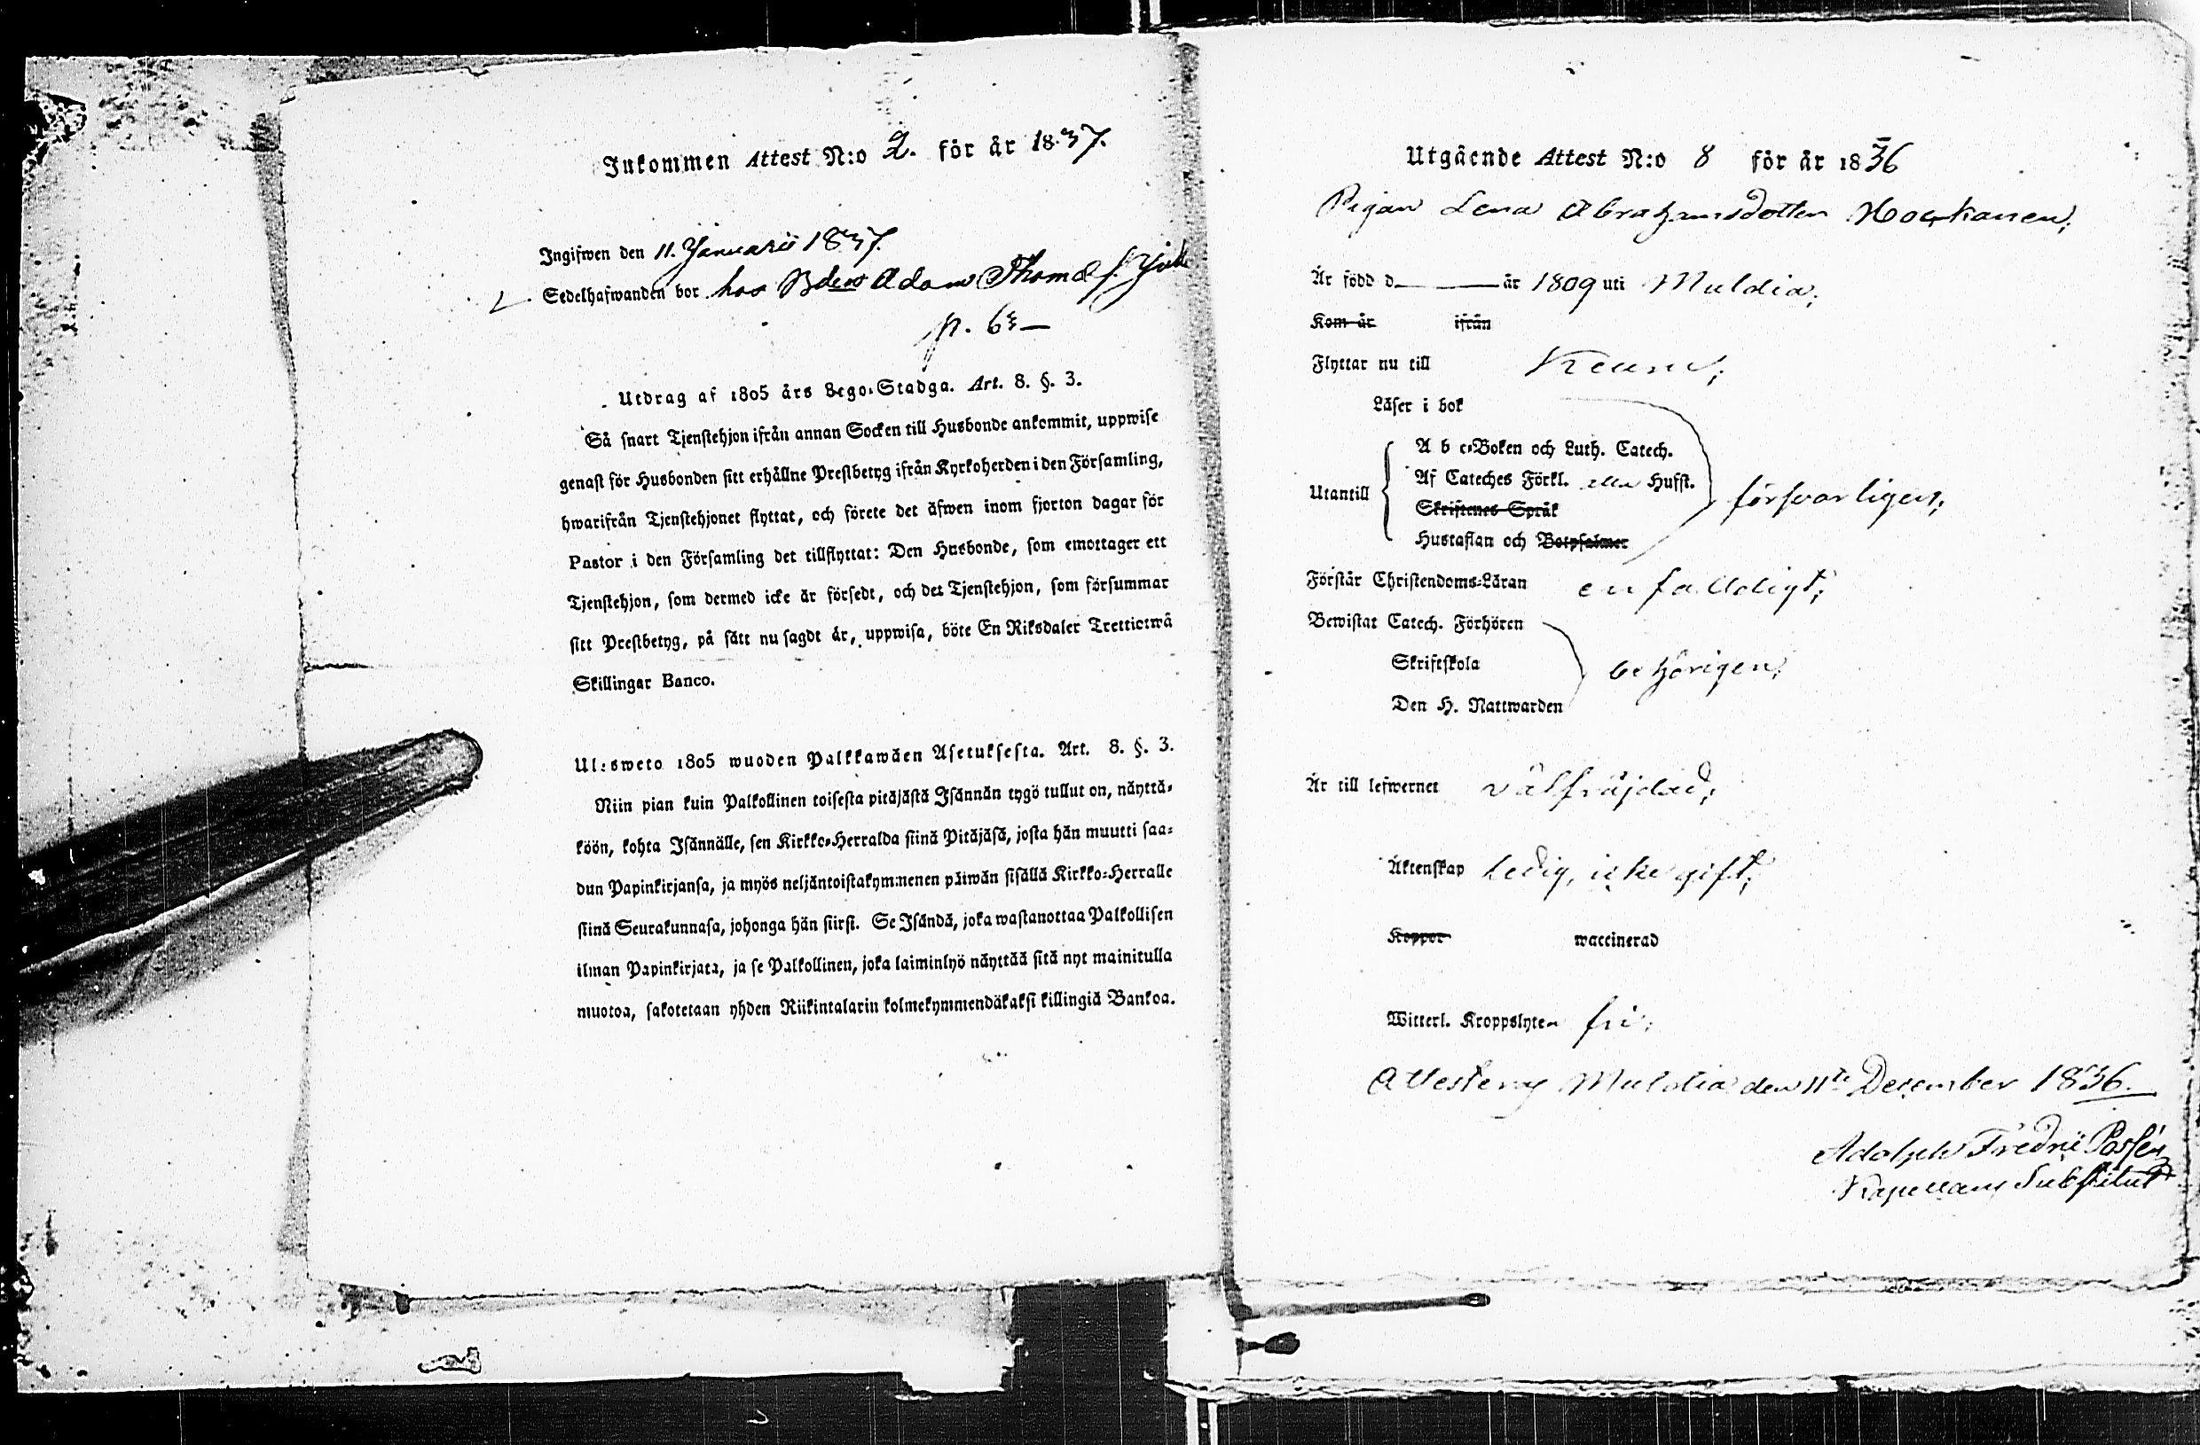 Inkommen Attest N:o 2. för år 1837.
Ingifwen den 11. Januarii 1837.
Sedelhafwanden bor hos Bden Adam Thomæ
p. 63
Utdrag af 1805 års Lego-Stadga. Art. 8. §. 3.
Så snart Tjenstehjon ifrån annan Socken till Husbonde ankommit, uppwise
genast för Husbonden sitt erhållne Prestbetyg ifrån Kyrkoherden i den Församling,
hwarifrån Tjenstehjonet flyttat, och förete det äfwen inom fjorton dagar för
Pastor i den Församling det tillflyttat: Den Husbonde, som emottager ett
Tjenstehjon, som dermed icke är försedt, och det Tjenstehjon, som försummar
sitt Prestbetyg, på sätt nu sagdt är, uppwisa, böte En Riksdaler Trettiotwå
Skillingar Banco.
Ulosweto 1805 wuoden Palkkawäen Asetuksesta. Art. 8. §. 3.
Niin pian kuin Palkollinen toisesta pitäjästä Isännän tygö tullut on, näyttä-
köön, kohta Isännälle, sen Kirkko-Herralda siinä Pitäjäsä, josta hän muutti saa-
dun Papinkirjansa, ja myös neljäntoistakymmenen päiwän sisällä Kirkko-Herralle
siinä Seurakunnasa, johonga hän siirsi. Se Isändä, joka wastanottaa Palkollisen
ilman Papinkirjata, ja se Palkollinen, joka laiminlyö näyttää sitä nyt mainitulla
muotoa, sakotetaan yhden Riikintalarin kolmekymmendäkaksi killingiä Bankoa.
Utgående Attest N:o 8 för år 1836
Pigan Lena Abrahamsdotter
Är född d år 1809 uti Muldia;
Kom år ifrån
Flyttar nu till Keuru;
Läser i bok
A b c-Boken och Luth. Catech.
Utantill Af Cateches Förkl. eller Hufst. försvarligen;
Skriftenes Språk
Hustaflan och Botpsalmer
Förstår Christendoms-Läran enfalldigt;
Bewistat Catech. Förhören
Skriftskola behörigen;
Den H. Nattwarden
Är till lefwernet välfräjdad;
Äktenskap ledig, icke gift;
Koppor waccinerad
Witterl. Kroppslyten fri;
Attesteras Muldia den 11te December 1836.
Adolph Fredric
Kapellans Substitut